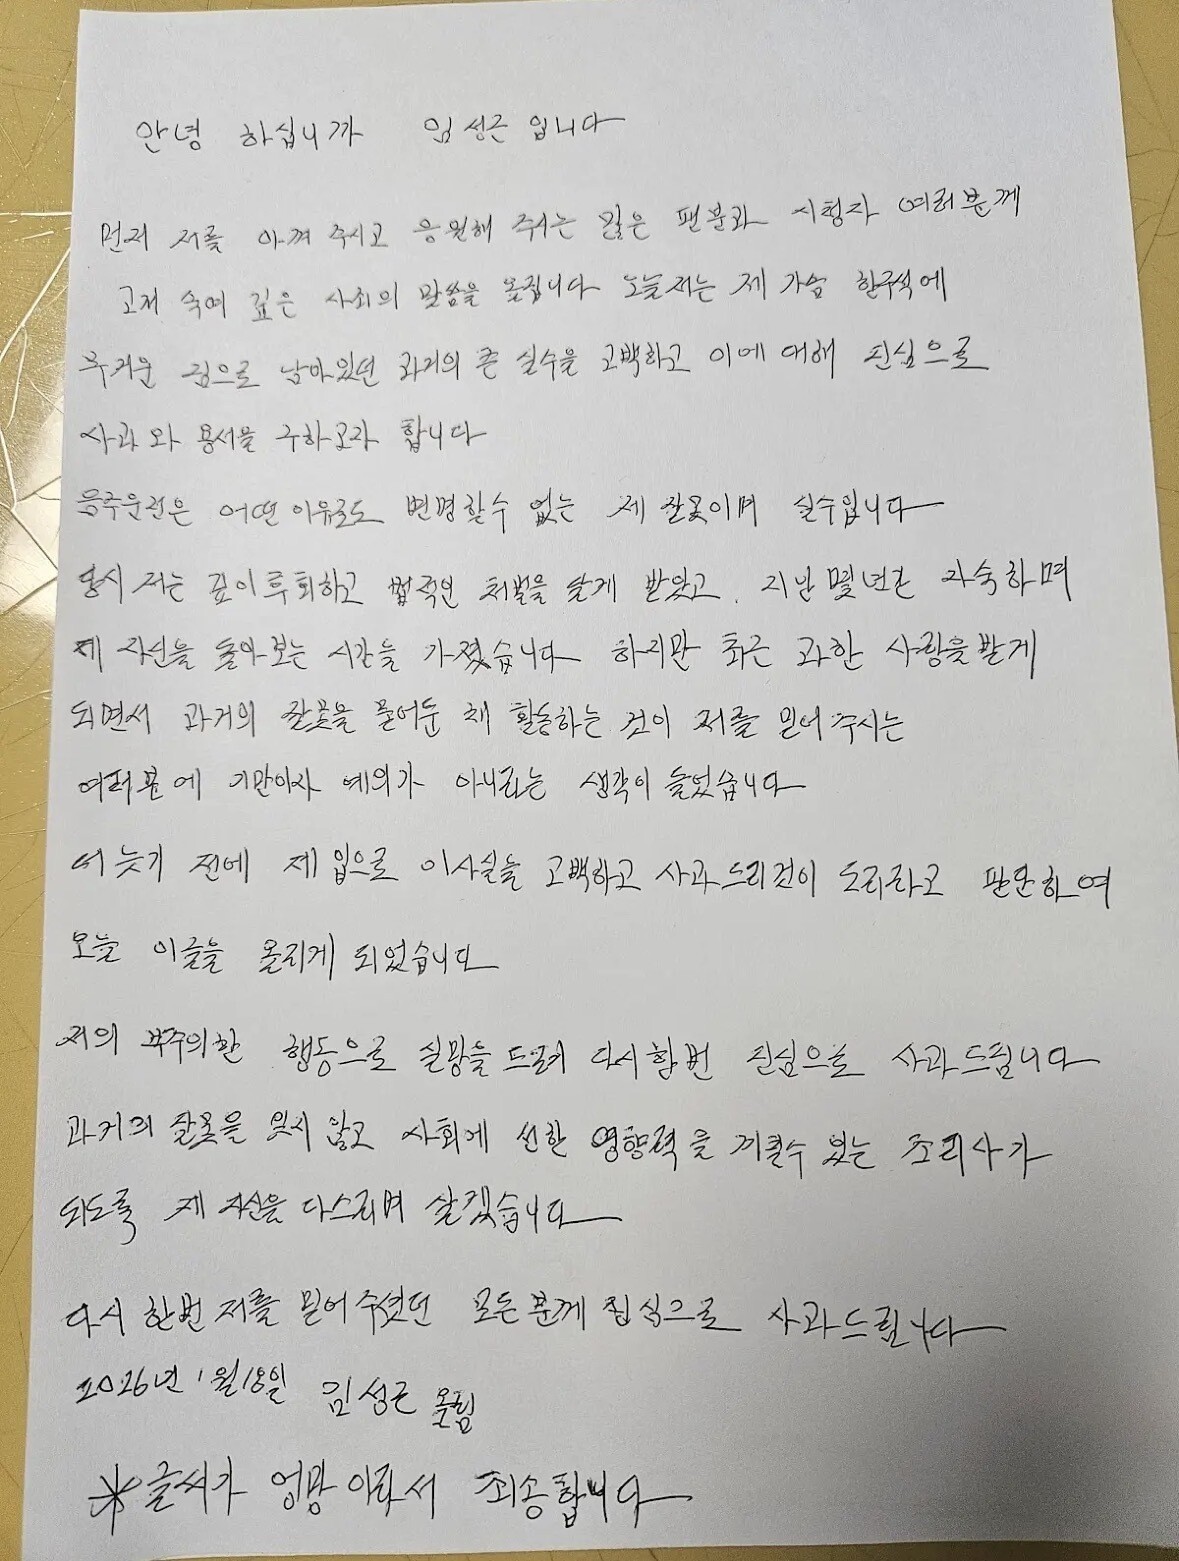 안녕 하십니까 임성근 입니다
먼저 저를 아껴 주시고 응원해 주시는 많은 팬분과 시청자 여러분께
고개 숙여 깊은 사죄의 말씀을 올립니다 오늘 저는 제 가슴 한구석에
무거운 짐으로 남아있던 과거의 큰 실수을 고백하고 이에 대해 진심으로
사과와 용서을 구하고자 합니다
음주운전은 어떤 이유로도 변명할수 없는 제 잘못이며 실수입니다
당시 저는 깊이 후회하고 법적인 처벌을 달게 받았고. 지난 몇년간 자숙하며
제 자신을 돌아보는 시간을 가졌습니다 하지만 최근 과한 사랑을받게
되면서 과거의 잘못을 묻어둔 채 활동하는 것이 저를 믿어 주시는
여러분에 기만이자 예의가 아니라는 생각이 들었습니다
더 늦기 전에 제 입으로 이사실을 고백하고 사과드리것이 도리라고 판단하여
오늘 이글을 올리게 되었습니다
저의 부주의한 행동으로 실망을 드려 다시함번 진심으로 사과드립니다
과거의 잘못을 잊지 않고 사회에 선한 영향력을 끼칠수 있는 조리사가
되도록 제 자신을 다스리며 살겠습니다
다시 한번 저를 믿어 주셨던 모든분께 진심으로 사과드립니다
2026년 1월18일 임성근 올림
※글씨가 엉망이라서 죄송합니다